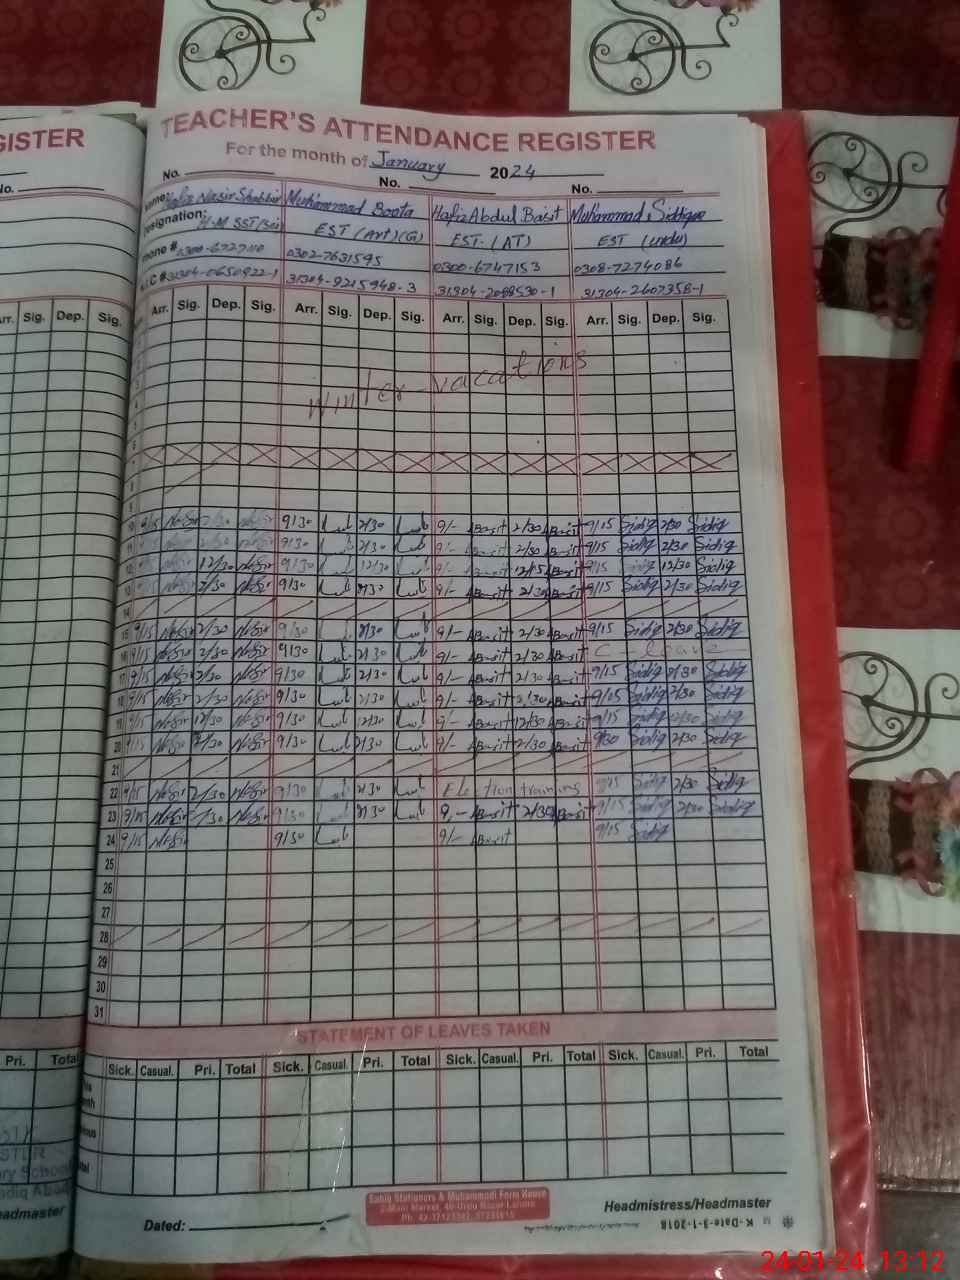 GISTER
TEACHER'S ATTENDANCE REGISTER
For the month of January 2024
No. No. No.
No.
Name Hafiz Nasir Shabbir Muhammad Boota Hafiz Abdul Basit Muhammad Siddique
Designation: H.M SST(Sci) EST (Art)(G) EST- (AT) EST (Urdu)
Phone # 0302-7631595 0300-6747153 0308-7274086
31304-0650922-1 31304-9215948-3 31304-2088530-1 31304-2607358-1
Arr. Sig. Dep. Sig. Arr. Sig. Dep. Sig. Arr. Sig. Dep. Sig. Arr. Sig. Dep. Sig. Arr. Sig. Dep. Sig.
Winter-vacations
10 9/15 Nasir 2/30 Nasir 9/30 2/30 9/- ABasit 2/30 ABasit 9/15 Sidiq 2/30 Sidiq
11 2/30 Nasir 9/30 2/30 9/- ABasit 2/30 ABasit 9/15 Sidiq 2/30 Sidiq
12 Nasir 12/30 Nasir 9/30 12/30 9/- ABasit 12/15 ABasit 9/15 Sidiq 12/30 Sidiq
13 Nasir 2/30 Nasir 9/30 2/30 9/- ABasit 2/30 ABasit 9/15 Sidiq 2/30 Sidiq
14
15 9/15 Nasir 2/30 Nasir 9/30 2/30 9/- ABasit 2/30 ABasit 9/15 Sidiq 2/30 Sidiq
16 9/15 Nasir 2/30 Nasir 9/30 2/30 9/- ABasit 2/30 ABasit C-leave
17 9/15 Nasir 2/30 Nasir 9/30 2/30 9/- ABasit 2/30 ABasit 9/15 Sidiq 2/30 Sidiq
18 9/15 Nasir 2/30 Nasir 9/30 2/30 9/- ABasit 2/30 ABasit 9/15 Sidiq 2/30 Sidiq
19 9/15 Nasir 12/30 Nasir 9/30 12/30 9/- ABasit 12/30 ABasit 9/15 Sidiq 12/30 Sidiq
20 9/15 Nasir 2/30 Nasir 9/30 2/30 9/- ABasit 2/30 ABasit 9/30 Sidiq 2/30 Sidiq
21
22 9/15 Nasir 2/30 Nasir 9/30 2/30 Election training 9/15 Sidiq 2/30 Sidiq
23 9/15 Nasir 2/30 Nasir 9/30 2/30 9/- ABasit 2/30 ABasit 9/15 Sidiq 2/30 Sidiq
24 9/15 Nasir 9/30 9/- ABasit 9/15 Sidiq
25
26
27
28
29
30
31
STATEMENT OF LEAVES TAKEN
Pri. Total Sick. Casual. Pri. Total Sick. Casual. Pri. Total Sick. Casual. Pri. Total Sick. Casual. Pri. Total
Sabiq Stationers & Muhammadi Form House
2-Main Market, 40-Urdu Bazar Lahore
Dated:
Headmistress/Headmaster
K-Date-3-1-2018
24-01-24 13:12